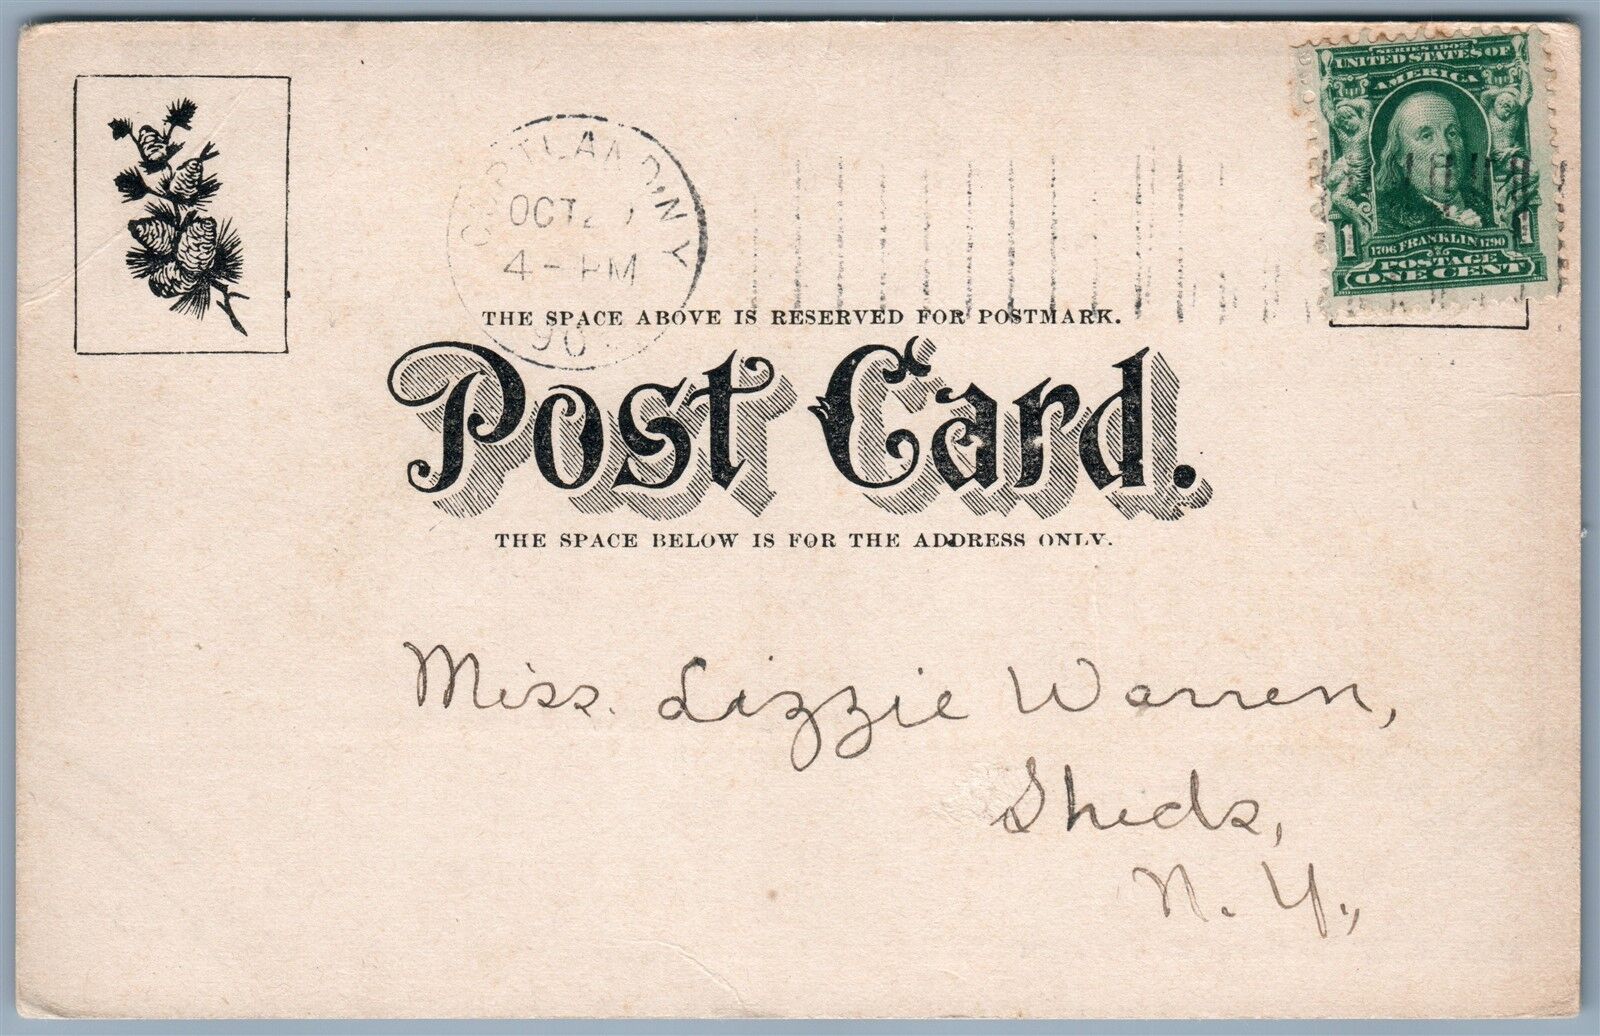 SERIES 1902
UNITED STATES OF
AMERICA
1 1706 FRANKLIN 1790 1
POSTAGE
ONE CENT
CORTLAND N Y
OCT
4-PM
THE SPACE ABOVE IS RESERVED FOR POSTMARK.
Post Card.
THE SPACE BELOW IS FOR THE ADDRESS ONLY.
Miss. Lizzie Warren,
Sheds,
N. Y.,